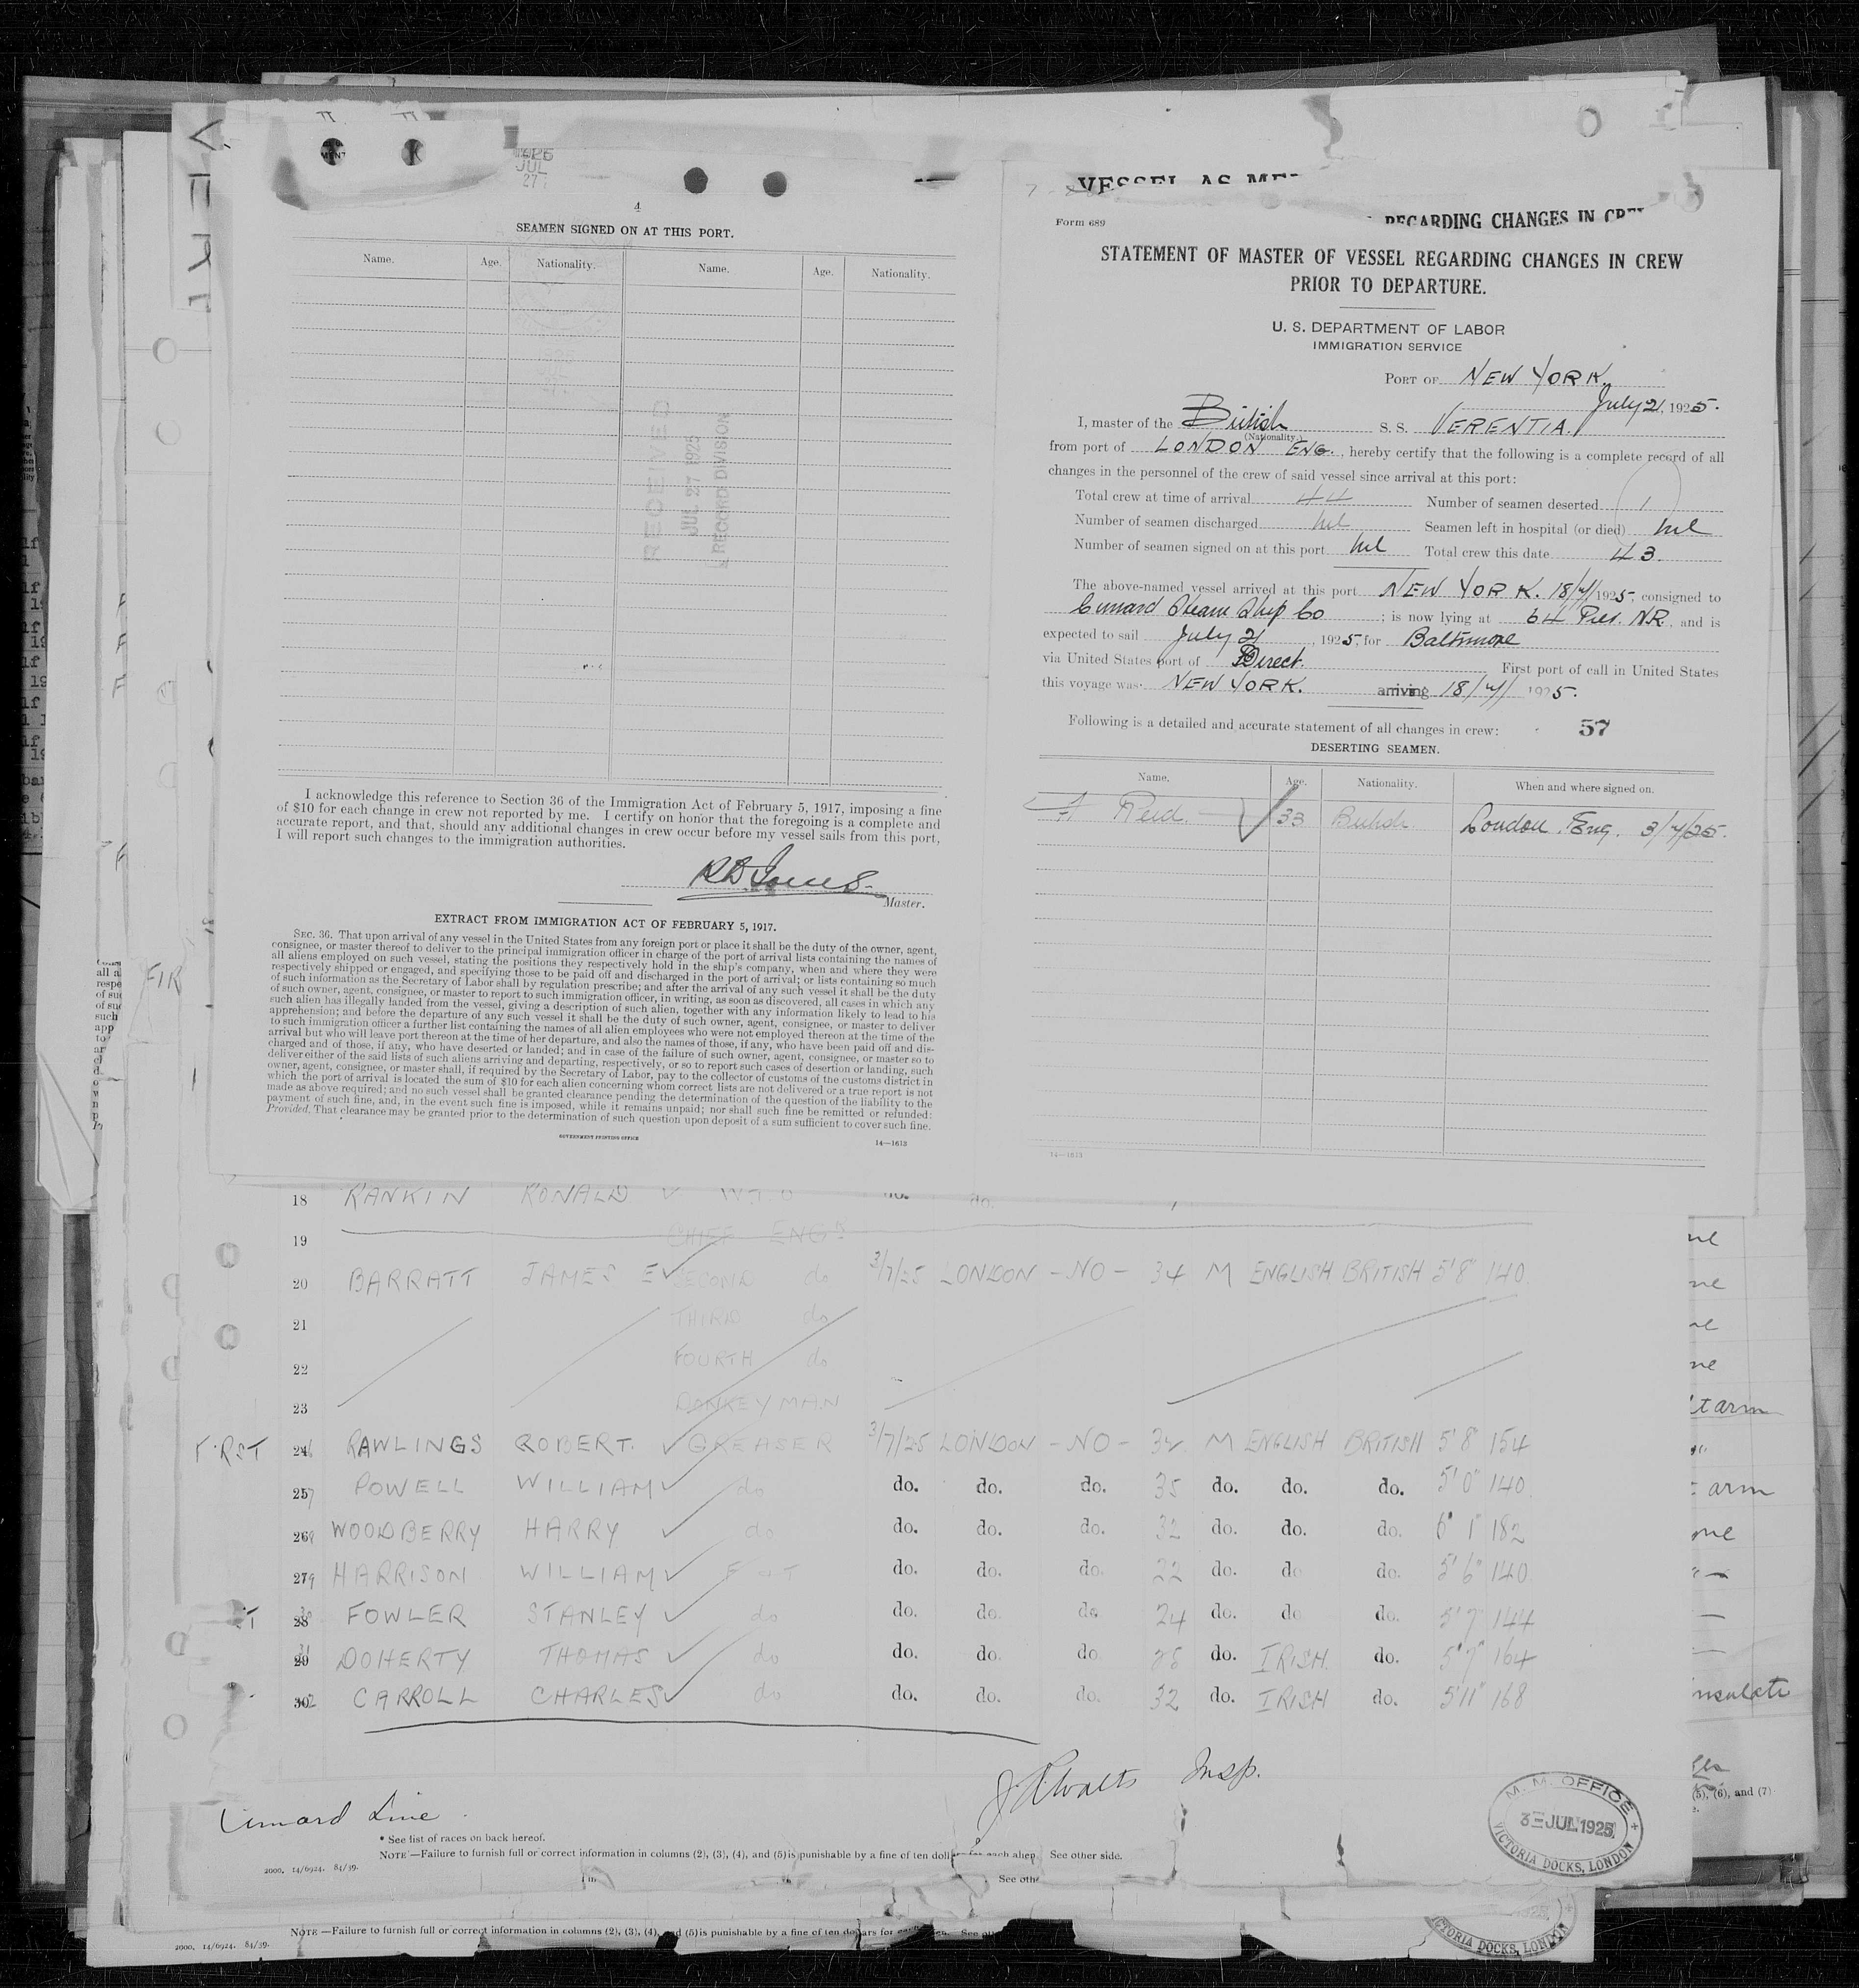 1925
JUL
27
4
SEAMEN SIGNED ON AT THIS PORT.
Name. Age. Nationality. Name. Age. Nationality.
RECEIVED
JUL 27 1925
RECORD DIVISION
I acknowledge this reference to Section 36 of the Immigration Act of February 5, 1917, imposing a fine
of $10 for each change in crew not reported by me. I certify on honor that the foregoing is a complete and
accurate report, and that, should any additional changes in crew occur before my vessel sails from this port,
I will report such changes to the immigration authorities.
Master.
EXTRACT FROM IMMIGRATION ACT OF FEBRUARY 5, 1917.
SEC. 36. That upon arrival of any vessel in the United States from any foreign port or place it shall be the duty of the owner, agent,
consignee, or master thereof to deliver to the principal immigration officer in charge of the port of arrival lists containing the names of
all aliens employed on such vessel, stating the positions they respectively hold in the ship's company, when and where they were
respectively shipped or engaged, and specifying those to be paid off and discharged in the port of arrival; or lists containing so much
of such information as the Secretary of Labor shall by regulation prescribe; and after the arrival of any such vessel it shall be the duty
of such owner, agent, consignee, or master to report to such immigration officer, in writing, as soon as discovered, all cases in which any
such alien has illegally landed from the vessel, giving a description of such alien, together with any information likely to lead to his
apprehension; and before the departure of any such vessel it shall be the duty of such owner, agent, consignee, or master to deliver
to such immigration officer a further list containing the names of all alien employees who were not employed thereon at the time of the
arrival but who will leave port thereon at the time of her departure, and also the names of those, if any, who have been paid off and dis-
charged and of those, if any, who have deserted or landed; and in case of the failure of such owner, agent, consignee, or master so to
deliver either of the said lists of such aliens arriving and departing, respectively, or so to report such cases of desertion or landing, such
owner, agent, consignee, or master shall, if required by the Secretary of Labor, pay to the collector of customs of the customs district in
which the port of arrival is located the sum of $10 for each alien concerning whom correct lists are not delivered or a true report is not
made as above required; and no such vessel shall be granted clearance pending the determination of the question of the liability to the
payment of such fine, and, in the event such fine is imposed, while it remains unpaid; nor shall such fine be remitted or refunded:
Provided, That clearance may be granted prior to the determination of such question upon deposit of a sum sufficient to cover such fine.
GOVERNMENT PRINTING OFFICE
14—1613
VESSEL AS
REGARDING CHANGES IN
Form 689
STATEMENT OF MASTER OF VESSEL REGARDING CHANGES IN CREW
PRIOR TO DEPARTURE.
U. S. DEPARTMENT OF LABOR
IMMIGRATION SERVICE
PORT OF NEW YORK.
July 21, 1925.
I, master of the British S. S. VERENTIA.
(Nationality.)
from port of LONDON ENG., hereby certify that the following is a complete record of all
changes in the personnel of the crew of said vessel since arrival at this port:
Total crew at time of arrival 44 Number of seamen deserted 1
Number of seamen discharged nil Seamen left in hospital (or died) nil
Number of seamen signed on at this port nil Total crew this date 43.
The above-named vessel arrived at this port NEW YORK. 18/7/1925, consigned to
Cunard Steam Ship Co ; is now lying at 64 Pier. N.R, and is
expected to sail July 21, 1925, for Baltimore
via United States port of Direct. First port of call in United States
this voyage was NEW YORK. arriving 18/7/ 1925.
Following is a detailed and accurate statement of all changes in crew: 57
DESERTING SEAMEN.
Name. Age. Nationality. When and where signed on.
Reid. 33 British London. Eng. 3/7/25.
14—1613
18 RANKIN RONALD do.
19 CHIEF ENGR
20 BARRATT JAMES E SECOND do 3/7/25 LONDON - NO - 34 M ENGLISH BRITISH 5'8" 140
21 THIRD do
22 FOURTH do
23 DONKEYMAN
FIRST 24 RAWLINGS ROBERT. GREASER 3/7/25 LONDON - NO - M ENGLISH BRITISH 5'8" 154
25 POWELL WILLIAM do do. do. do. 35 do. do. do. 5'0" 140
26 WOODBERRY HARRY do do. do. do. 32 do. do. do. 6' 1" 182
27 HARRISON WILLIAM do. do. do. 22 do. do do. 5'6" 140
28 FOWLER STANLEY do do. do. do 24 do. do do. 5'7" 144
29 DOHERTY THOMAS do do. do. do do. IRISH. do. 5'7" 164
30 CARROLL CHARLES do do. do. do. 32 do. IRISH do. 5'11" 168
Insp.
Cunard Line.
* See list of races on back hereof.
NOTE —Failure to furnish full or correct information in columns (2), (3), (4), and (5) is punishable by a fine of ten dollars for each alien. See other side.
2000. 14/6924. 84/39.
M. M. OFFICE
3 JUL 1925
VICTORIA DOCKS, LONDON
NOTE —Failure to furnish full or correct information in columns (2), (3), (4), and (5) is punishable by a fine of ten dollars for
2000. 14/6924. 84/39.
VICTORIA DOCKS, LONDON